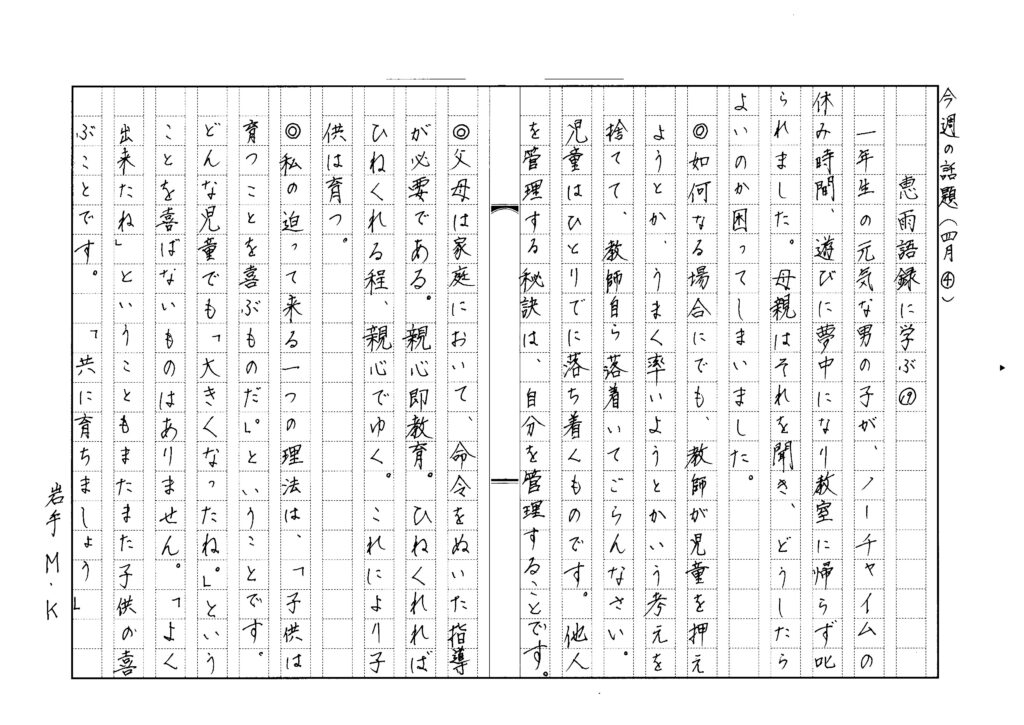 今週の話題(四月④)
恵雨語録に学ぶ⑲
一年生の元気な男の子が、ノーチャイムの
休み時間、遊びに夢中になり教室に帰らず叱
られました。母親はそれを聞き、どうしたら
よいのか困ってしまいました。
◎如何なる場合にでも、教師が児童を押え
ようとか、うまく率いようとかいう考えを
捨てて、教師自ら落着いてごらんなさい。
児童はひとりでに落ち着くものです。他人
を管理する秘訣は、自分を管理することです。
◎父母は家庭において、命令をぬいた指導
が必要である。親心即教育。ひねくれれば
ひねくれる程、親心でゆく。これにより子
供は育つ。
◎私の迫って来る一つの理法は、「子供は
育つことを喜ぶものだ。」ということです。
どんな児童でも「大きくなったね。」という
ことを喜ばないものはありません。「よく
出来たね」ということもまたまた子供の喜
ぶことです。「共に育ちましょう」
岩手 M.K